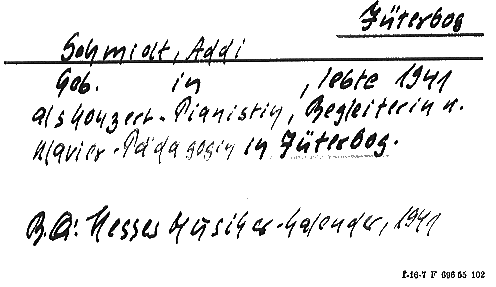 Jüterbog
Schmidt, Addi
Geb. in , lebte 1941
als Konzert-Pianistin, Begleiterin u.
Klavier-Pädagogin in Jüterbog.
B.Q: Hesses Musiker-Kalender, 1941
I-16-7 F 696 55 102